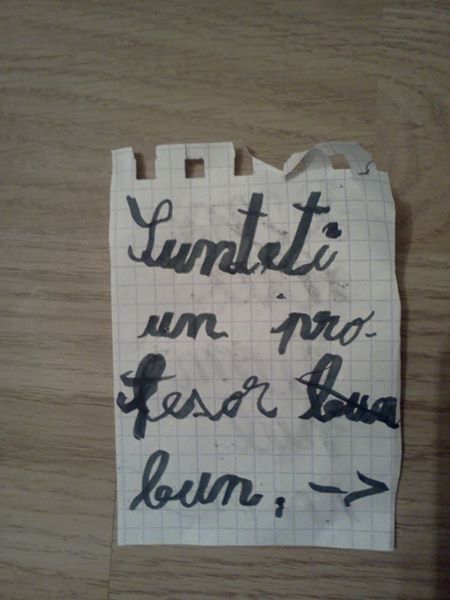 Sunteti
un pro-
fesor bun
bun, ->